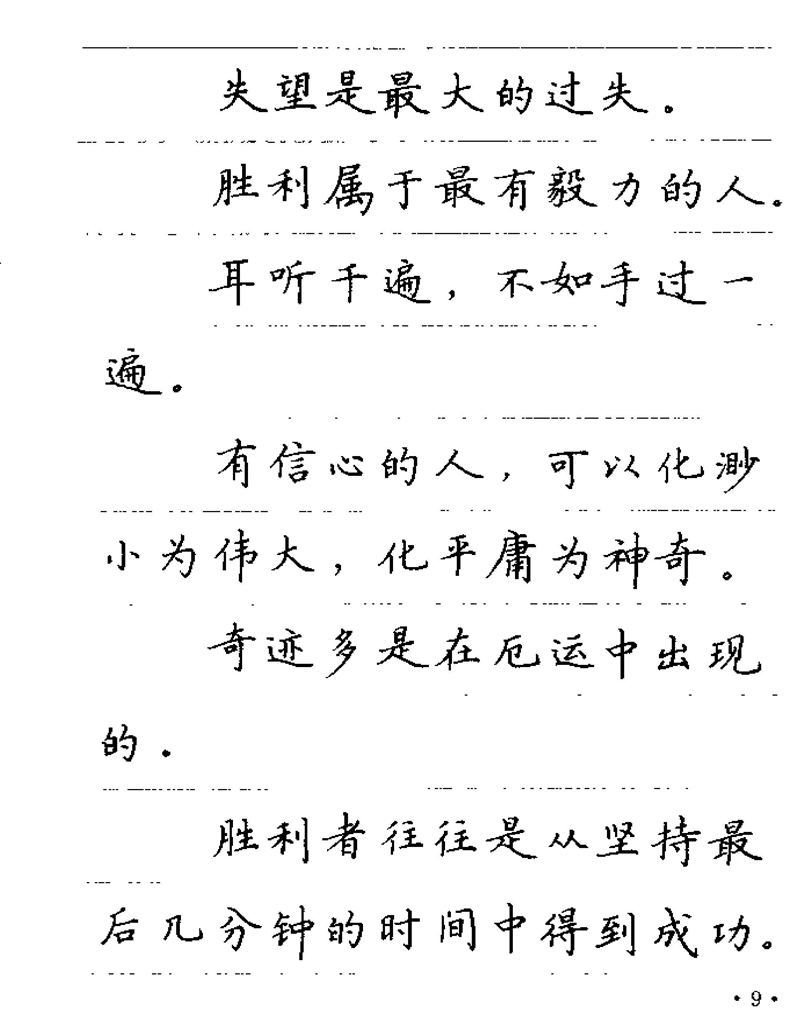 失望是最大的过失。
胜利属于最有毅力的人。
耳听千遍，不如手过一
遍。
有信心的人，可以化渺
小为伟大，化平庸为神奇。
奇迹多是在厄运中出现
的.
胜利者往往是从坚持最
后几分钟的时间中得到成功。
·9·